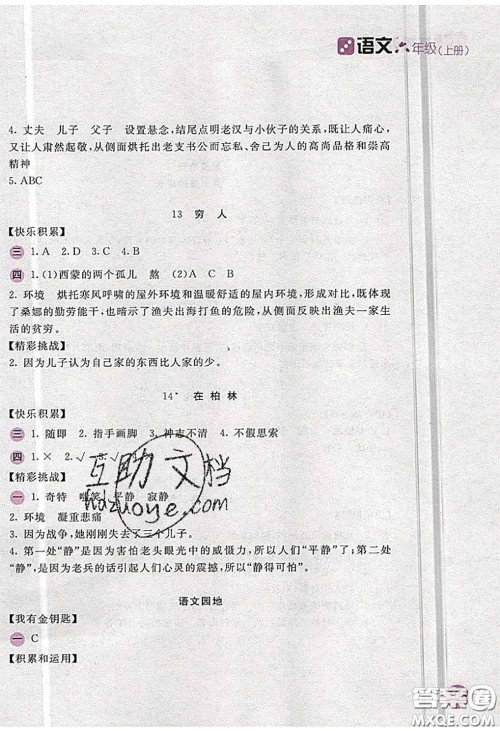 语文 六年级(上册)
4. 丈夫 儿子 父子 设置悬念,结尾点明老汉与小伙子的关系,既让人痛心,
又让人肃然起敬,从侧面烘托出老支书公而忘私、舍己为人的高尚品格和崇高
精神
5. ABC
13 穷人
【快乐积累】
三 1. A 2. D 3. C 4. B
四 1. (1)西蒙的两个孤儿 熬 (2)A C B
2. 环境 烘托寒风呼啸的屋外环境和温暖舒适的屋内环境,形成对比,既体现
了桑娜的勤劳能干,也暗示了渔夫出海打鱼的危险,从侧面反映出渔夫一家生
活的贫穷。
【精彩挑战】
2. 因为儿子认为自己家的东西比人家的少。
14* 在柏林
【快乐积累】
三 1. 随即 2. 指手画脚 3. 神志不清 4. 不假思索
四 1. × 2. √ 3. √
【精彩挑战】
一 1. 奇特 嗤笑 平静 寂静
2. 环境 凝重悲痛
3. 因为战争,她刚刚失去了三个儿子。
4. 第一处“静”是因为害怕老头眼光中的威慑力,所以人们“平静”了。第二处
“静”,是因为老兵的话引起人们心灵的震撼,所以“静得可怕”。
语文园地
【我有金钥匙】
一 C
【积累和运用】
互助文档
hdzuoye.com
答案圈
MXQE.COM